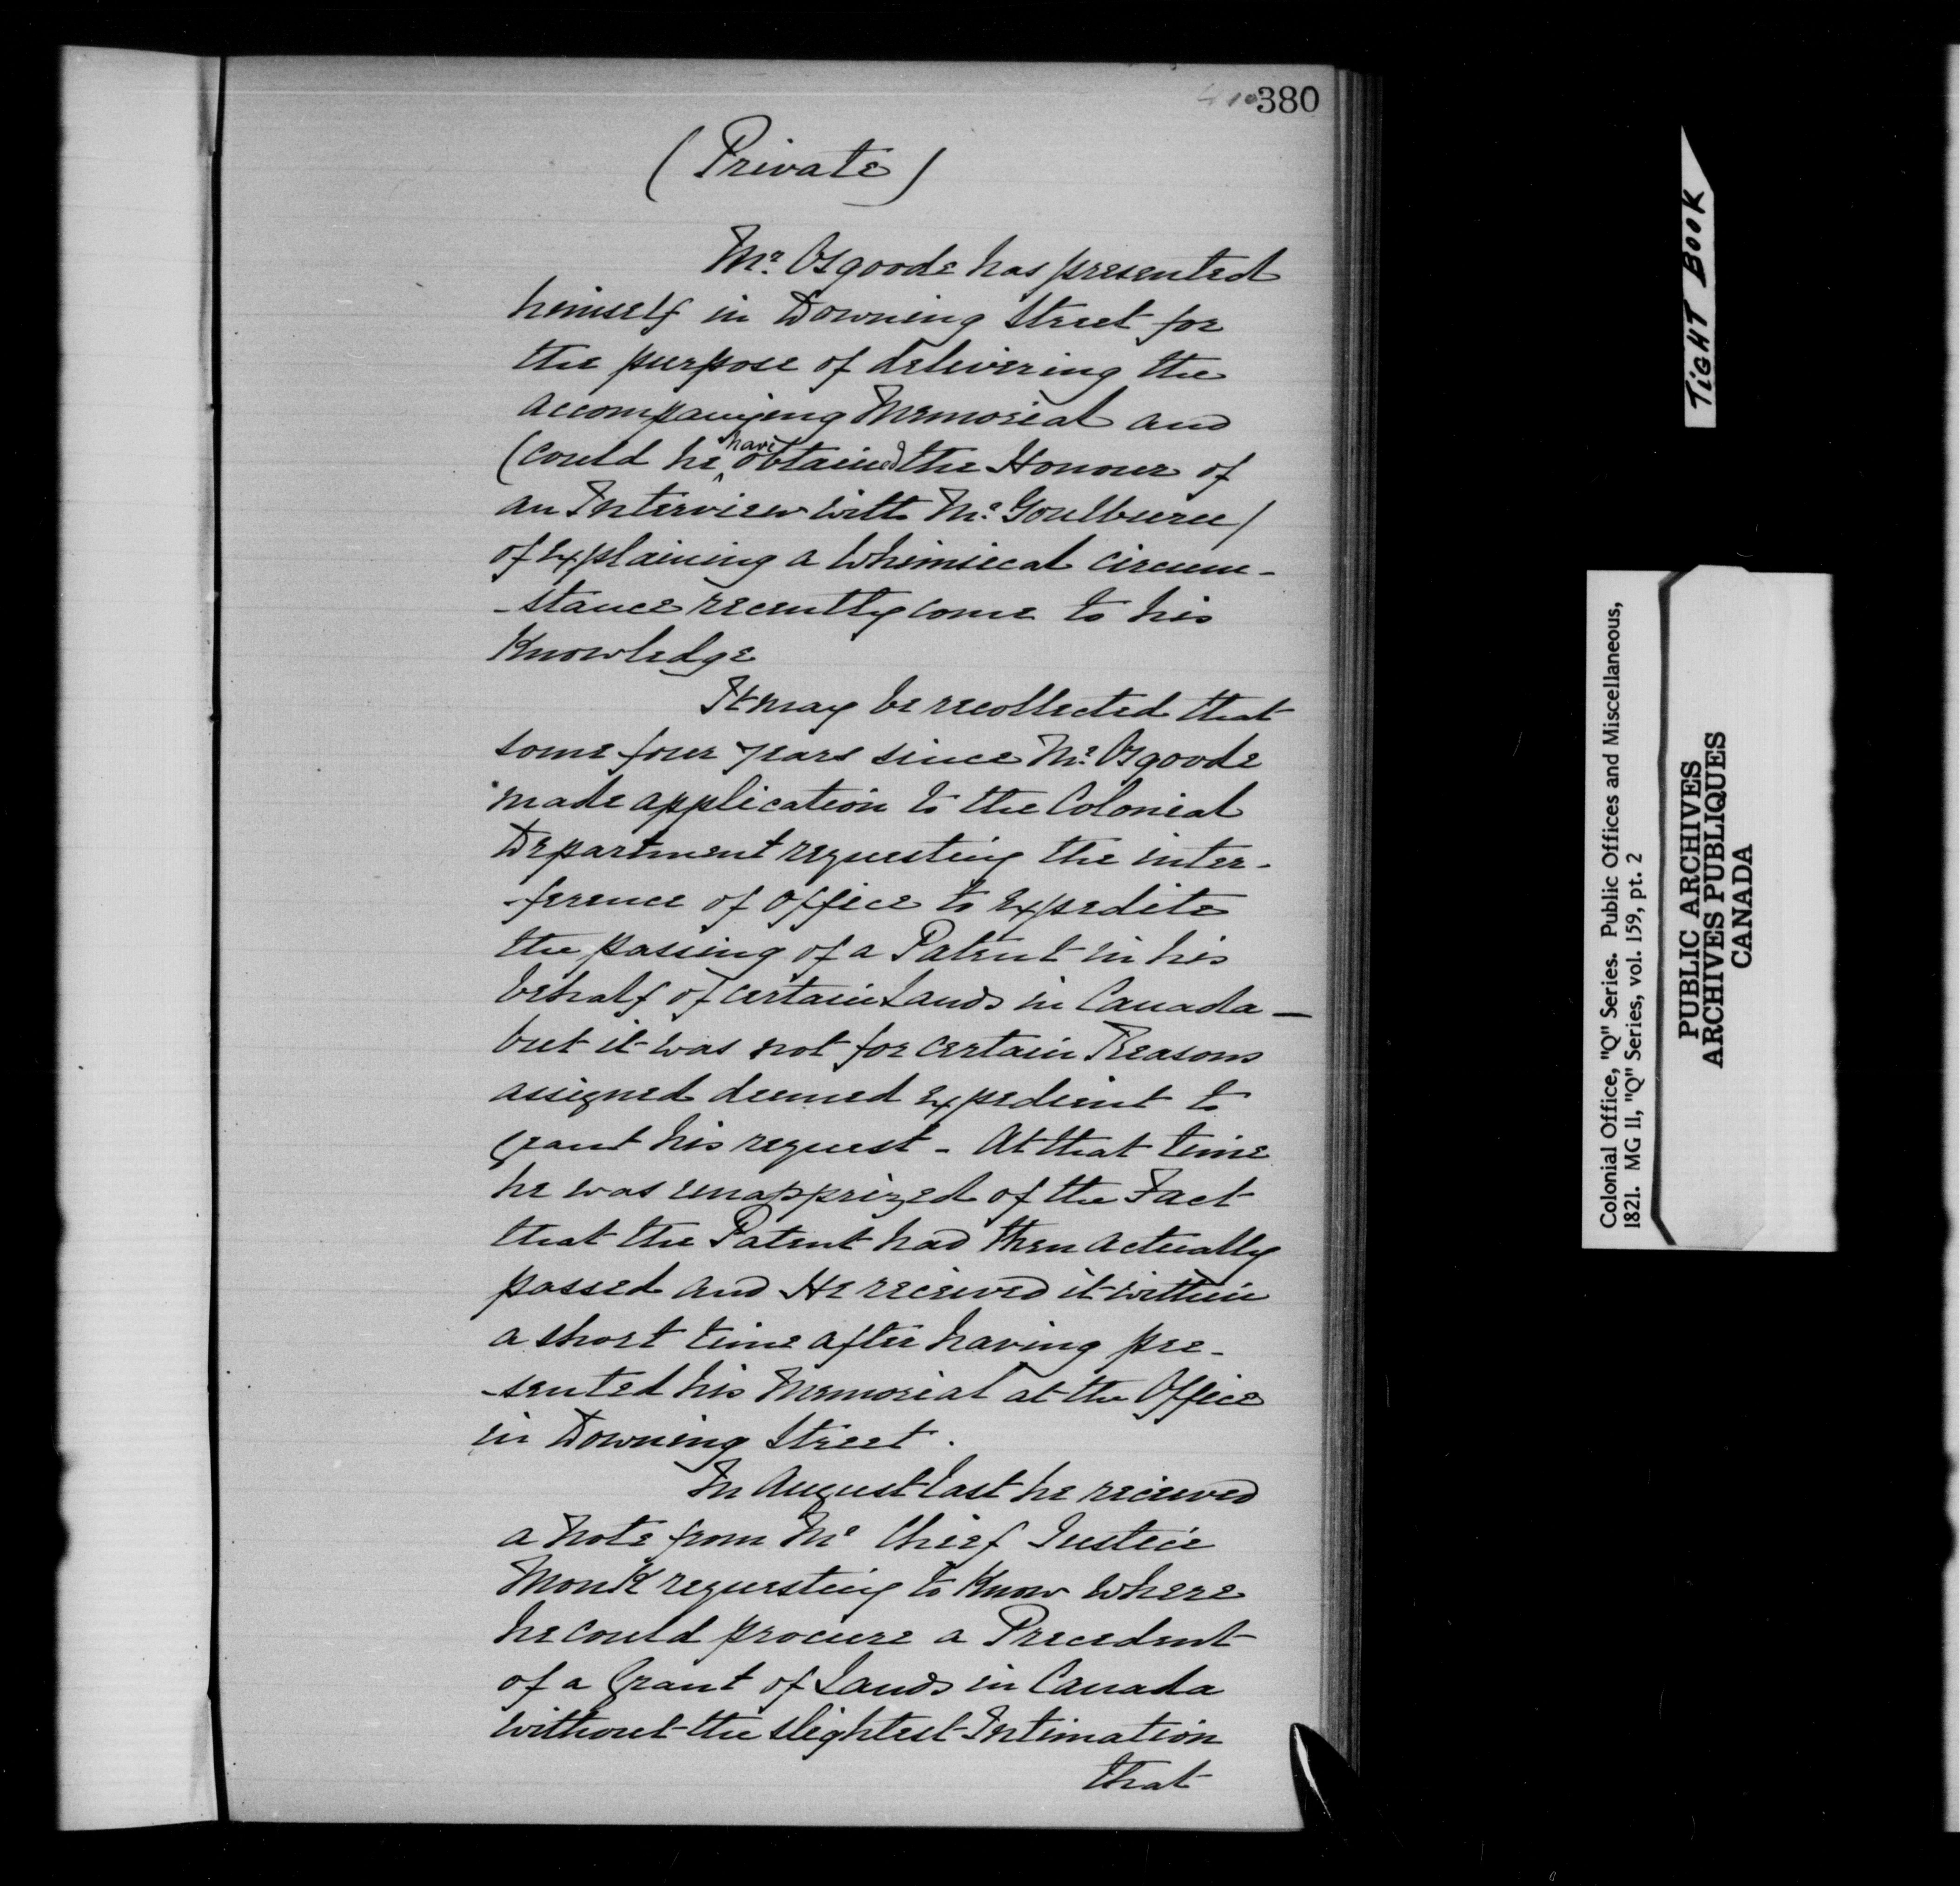 380
(Private)
Mr. Osgoode has presented
himself in Downing Street for
the purpose of delivering the
accompanying Memorial and
(could he have obtained the Honour of
an Interview with Mr. Goulburn)
of explaining a whimsical circum-
-stance recently come to his
Knowledge
It may be recollected that
some four years since Mr. Osgoode
made application to the Colonial
Department requesting the inter-
-ference of office to expedite
the passing of a Patent in his
behalf of certain Lands in Canada —
but it was not for certain Reasons
assigned deemed expedient to
grant his request - At that time
he was unapprized of the Fact
that the Patent had then actually
passed and He received it within
a short time after having pre-
-sented his Memorial at the Office
in Downing Street.
In August last he received
a Note from Mr Chief Justice
Monk requesting to Know where
he could procure a Precedent
of a Grant of Lands in Canada
without the slightest Intimation
that
TIGHT BOOK
Colonial Office, "Q" Series. Public Offices and Miscellaneous,
1821. MG 11, "Q" Series, vol. 159, pt. 2
PUBLIC ARCHIVES
ARCHIVES PUBLIQUES
CANADA